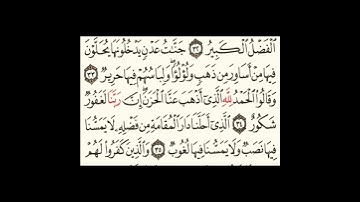 ٱلْفَضْلُ ٱلْكَبِيرُ ٣٢ جَنَّٰتُ عَدْنٍ يَدْخُلُونَهَا يُحَلَّوْنَ
فِيهَا مِنْ أَسَاوِرَ مِن ذَهَبٍ وَلُؤْلُؤًا وَلِبَاسُهُمْ فِيهَا حَرِيرٌ ٣٣
وَقَالُوا۟ ٱلْحَمْدُ لِلَّهِ ٱلَّذِىٓ أَذْهَبَ عَنَّا ٱلْحَزَنَ إِنَّ رَبَّنَا لَغَفُورٌ
شَكُورٌ ٣٤ ٱلَّذِىٓ أَحَلَّنَا دَارَ ٱلْمُقَامَةِ مِن فَضْلِهِۦ لَا يَمَسُّنَا
فِيهَا نَصَبٌ وَلَا يَمَسُّنَا فِيهَا لُغُوبٌ ٣٥ وَٱلَّذِينَ كَفَرُوا۟ لَهُمْ